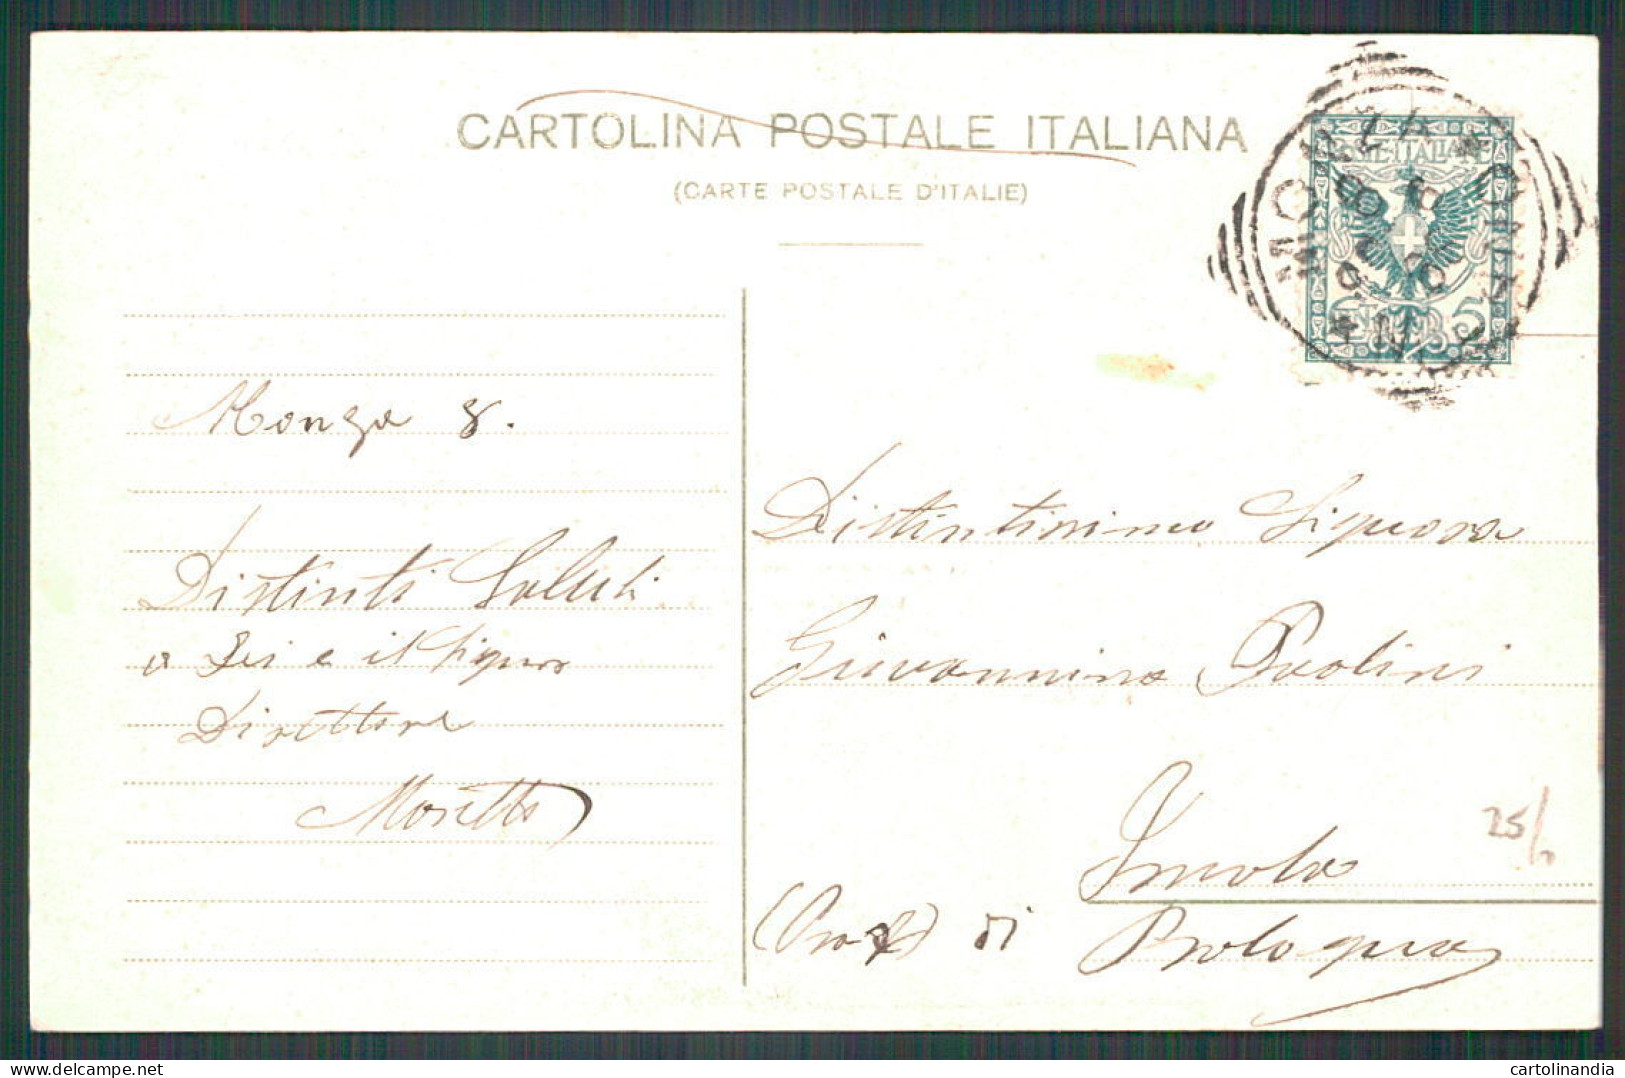 CARTOLINA POSTALE ITALIANA
(CARTE POSTALE D'ITALIE)
POSTE ITALIANE
5
Monza 8.
Distinti Saluti
a Lei e il Signor
Direttore
Moretti
Distintissima Signora
Giovannina Paolini
Imola
(Prov) di Bologna
25/
cartolinandia